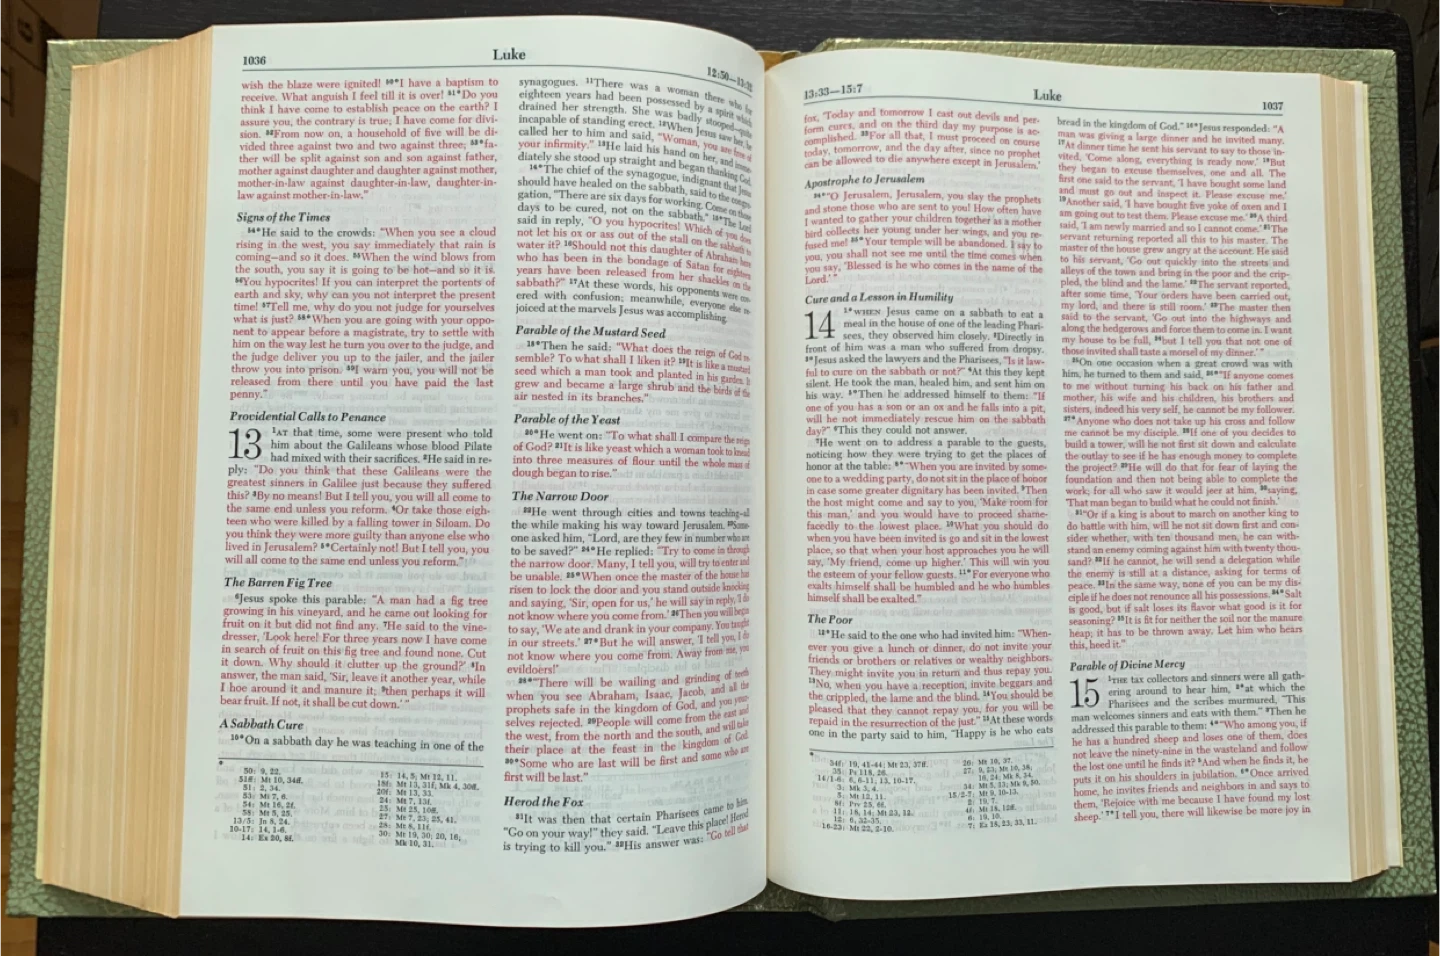 1036
Luke
12:50—13:32
wish the blaze were ignited! 50*I have a baptism to
receive. What anguish I feel till it is over! 51*Do you
think I have come to establish peace on the earth? I
assure you, the contrary is true; I have come for divi-
sion. 52From now on, a household of five will be di-
vided three against two and two against three; 53*fa-
ther will be split against son and son against father,
mother against daughter and daughter against mother,
mother-in-law against daughter-in-law, daughter-in-
law against mother-in-law."
Signs of the Times
54*He said to the crowds: "When you see a cloud
rising in the west, you say immediately that rain is
coming—and so it does. 55When the wind blows from
the south, you say it is going to be hot—and so it is.
56You hypocrites! If you can interpret the portents of
earth and sky, why can you not interpret the present
time! 57Tell me, why do you not judge for yourselves
what is just? 58*When you are going with your oppo-
nent to appear before a magistrate, try to settle with
him on the way lest he turn you over to the judge, and
the judge deliver you up to the jailer, and the jailer
throw you into prison. 59I warn you, you will not be
released from there until you have paid the last
penny."
Providential Calls to Penance
13 1AT that time, some were present who told
him about the Galileans whose blood Pilate
had mixed with their sacrifices. 2He said in re-
ply: "Do you think that these Galileans were the
greatest sinners in Galilee just because they suffered
this? 3By no means! But I tell you, you will all come to
the same end unless you reform. 4Or take those eigh-
teen who were killed by a falling tower in Siloam. Do
you think they were more guilty than anyone else who
lived in Jerusalem? 5*Certainly not! But I tell you, you
will all come to the same end unless you reform."
The Barren Fig Tree
6Jesus spoke this parable: "A man had a fig tree
growing in his vineyard, and he came out looking for
fruit on it but did not find any. 7He said to the vine-
dresser, 'Look here! For three years now I have come
in search of fruit on this fig tree and found none. Cut
it down. Why should it clutter up the ground?' 8In
answer, the man said, 'Sir, leave it another year, while
I hoe around it and manure it; 9then perhaps it will
bear fruit. If not, it shall be cut down.' "
A Sabbath Cure
10*On a sabbath day he was teaching in one of the
synagogues. 11There was a woman there who for
eighteen years had been possessed by a spirit which
drained her strength. She was badly stooped—quite
incapable of standing erect. 12When Jesus saw her, he
called her to him and said, "Woman, you are free of
your infirmity." 13He laid his hand on her, and imme-
diately she stood up straight and began thanking God.
14*The chief of the synagogue, indignant that Jesus
should have healed on the sabbath, said to the congre-
gation, "There are six days for working. Come on those
days to be cured, not on the sabbath." 15*The Lord
said in reply, "O you hypocrites! Which of you does
not let his ox or ass out of the stall on the sabbath to
water it? 16Should not this daughter of Abraham here
who has been in the bondage of Satan for eighteen
years have been released from her shackles on the
sabbath?" 17At these words, his opponents were cov-
ered with confusion; meanwhile, everyone else re-
joiced at the marvels Jesus was accomplishing.
Parable of the Mustard Seed
18*Then he said: "What does the reign of God re-
semble? To what shall I liken it? 19It is like a mustard
seed which a man took and planted in his garden. It
grew and became a large shrub and the birds of the
air nested in its branches."
Parable of the Yeast
20*He went on: "To what shall I compare the reign
of God? 21It is like yeast which a woman took to knead
into three measures of flour until the whole mass of
dough began to rise."
The Narrow Door
22He went through cities and towns teaching—all
the while making his way toward Jerusalem. 23Some-
one asked him, "Lord, are they few in number who are
to be saved?" 24*He replied: "Try to come in through
the narrow door. Many, I tell you, will try to enter and
be unable. 25*When once the master of the house has
risen to lock the door and you stand outside knocking
and saying, 'Sir, open for us,' he will say in reply, 'I do
not know where you come from.' 26Then you will begin
to say, 'We ate and drank in your company. You taught
in our streets.' 27*But he will answer, 'I tell you, I do
not know where you come from. Away from me, you
evildoers!'
28*"There will be wailing and grinding of teeth
when you see Abraham, Isaac, Jacob, and all the
prophets safe in the kingdom of God, and you your-
selves rejected. 29People will come from the east and
the west, from the north and the south, and will take
their place at the feast in the kingdom of God.
30*Some who are last will be first and some who are
first will be last."
Herod the Fox
31It was then that certain Pharisees came to him.
"Go on your way!" they said. "Leave this place! Herod
is trying to kill you." 32His answer was: "Go tell that
*
50: 9, 22.
51ff: Mt 10, 34ff.
51: 2, 34.
53: Mi 7, 6.
54: Mt 16, 2f.
58: Mt 5, 25.
13/5: Jn 8, 24.
10-17: 14, 1-6.
14: Ex 20, 8f.
15: 14, 5; Mt 12, 11.
18f: Mt 13, 31f; Mk 4, 30ff.
20f: Mt 13, 33.
24: Mt 7, 13f.
25: Mt 25, 10ff.
27: Mt 7, 23; 25, 41.
28: Mt 8, 11f.
30: Mt 19, 30; 20, 16;
Mk 10, 31.
13:33—15:7
Luke
1037
fox, 'Today and tomorrow I cast out devils and per-
form cures, and on the third day my purpose is ac-
complished. 33For all that, I must proceed on course
today, tomorrow, and the day after, since no prophet
can be allowed to die anywhere except in Jerusalem.'
Apostrophe to Jerusalem
34*"O Jerusalem, Jerusalem, you slay the prophets
and stone those who are sent to you! How often have
I wanted to gather your children together as a mother
bird collects her young under her wings, and you re-
fused me! 35*Your temple will be abandoned. I say to
you, you shall not see me until the time comes when
you say, 'Blessed is he who comes in the name of the
Lord.' "
Cure and a Lesson in Humility
14 1*WHEN Jesus came on a sabbath to eat a
meal in the house of one of the leading Phari-
sees, they observed him closely. 2Directly in
front of him was a man who suffered from dropsy.
3*Jesus asked the lawyers and the Pharisees, "Is it law-
ful to cure on the sabbath or not?" 4At this they kept
silent. He took the man, healed him, and sent him on
his way. 5*Then he addressed himself to them: "If
one of you has a son or an ox and he falls into a pit,
will he not immediately rescue him on the sabbath
day?" 6This they could not answer.
7He went on to address a parable to the guests,
noticing how they were trying to get the places of
honor at the table: 8*"When you are invited by some-
one to a wedding party, do not sit in the place of honor
in case some greater dignitary has been invited. 9Then
the host might come and say to you, 'Make room for
this man,' and you would have to proceed shame-
facedly to the lowest place. 10What you should do
when you have been invited is go and sit in the lowest
place, so that when your host approaches you he will
say, 'My friend, come up higher.' This will win you
the esteem of your fellow guests. 11*For everyone who
exalts himself shall be humbled and he who humbles
himself shall be exalted."
The Poor
12*He said to the one who had invited him: "When-
ever you give a lunch or dinner, do not invite your
friends or brothers or relatives or wealthy neighbors.
They might invite you in return and thus repay you.
13No, when you have a reception, invite beggars and
the crippled, the lame and the blind. 14You should be
pleased that they cannot repay you, for you will be
repaid in the resurrection of the just." 15At these words
one in the party said to him, "Happy is he who eats
bread in the kingdom of God." 16*Jesus responded: "A
man was giving a large dinner and he invited many.
17At dinner time he sent his servant to say to those in-
vited, 'Come along, everything is ready now.' 18But
they began to excuse themselves, one and all. The
first one said to the servant, 'I have bought some land
and must go out and inspect it. Please excuse me.'
19Another said, 'I have bought five yoke of oxen and I
am going out to test them. Please excuse me.' 20A third
said, 'I am newly married and so I cannot come.' 21The
servant returning reported all this to his master. The
master of the house grew angry at the account. He said
to his servant, 'Go out quickly into the streets and
alleys of the town and bring in the poor and the crip-
pled, the blind and the lame.' 22The servant reported,
after some time, 'Your orders have been carried out,
my lord, and there is still room.' 23The master then
said to the servant, 'Go out into the highways and
along the hedgerows and force them to come in. I want
my house to be full, 24but I tell you that not one of
those invited shall taste a morsel of my dinner.' "
25On one occasion when a great crowd was with
him, he turned to them and said, 26*"If anyone comes
to me without turning his back on his father and
mother, his wife and his children, his brothers and
sisters, indeed his very self, he cannot be my follower.
27*Anyone who does not take up his cross and follow
me cannot be my disciple. 28If one of you decides to
build a tower, will he not first sit down and calculate
the outlay to see if he has enough money to complete
the project? 29He will do that for fear of laying the
foundation and then not being able to complete the
work; for all who saw it would jeer at him, 30saying,
'That man began to build what he could not finish.'
31"Or if a king is about to march on another king to
do battle with him, will he not sit down first and con-
sider whether, with ten thousand men, he can with-
stand an enemy coming against him with twenty thou-
sand? 32If he cannot, he will send a delegation while
the enemy is still at a distance, asking for terms of
peace. 33In the same way, none of you can be my dis-
ciple if he does not renounce all his possessions. 34*Salt
is good, but if salt loses its flavor what good is it for
seasoning? 35It is fit for neither the soil nor the manure
heap; it has to be thrown away. Let him who hears
this, heed it."
Parable of Divine Mercy
15 1THE tax collectors and sinners were all gath-
ering around to hear him, 2*at which the
Pharisees and the scribes murmured, "This
man welcomes sinners and eats with them." 3Then he
addressed this parable to them: 4*"Who among you, if
he has a hundred sheep and loses one of them, does
not leave the ninety-nine in the wasteland and follow
the lost one until he finds it? 5And when he finds it, he
puts it on his shoulders in jubilation. 6*Once arrived
home, he invites friends and neighbors in and says to
them, 'Rejoice with me because I have found my lost
sheep.' 7*I tell you, there will likewise be more joy in
*
34f: 19, 41-44; Mt 23, 37ff.
35: Ps 118, 26.
14/1-6: 6, 6-11; 13, 10-17.
3: Mk 3, 4.
5: Mt 12, 11.
8f: Prv 25, 6f.
11: 18, 14; Mt 23, 12.
12: 6, 32-35.
16-23: Mt 22, 2-10.
26: Mt 10, 37.
27: 9, 23; Mt 10, 38;
16, 24; Mk 8, 34.
34: Mt 5, 13; Mk 9, 50.
15/2-7: Mt 9, 10-13.
2: 19, 7.
4f: Mt 18, 12ff.
6: 19, 10.
7: Ez 18, 23; 33, 11.